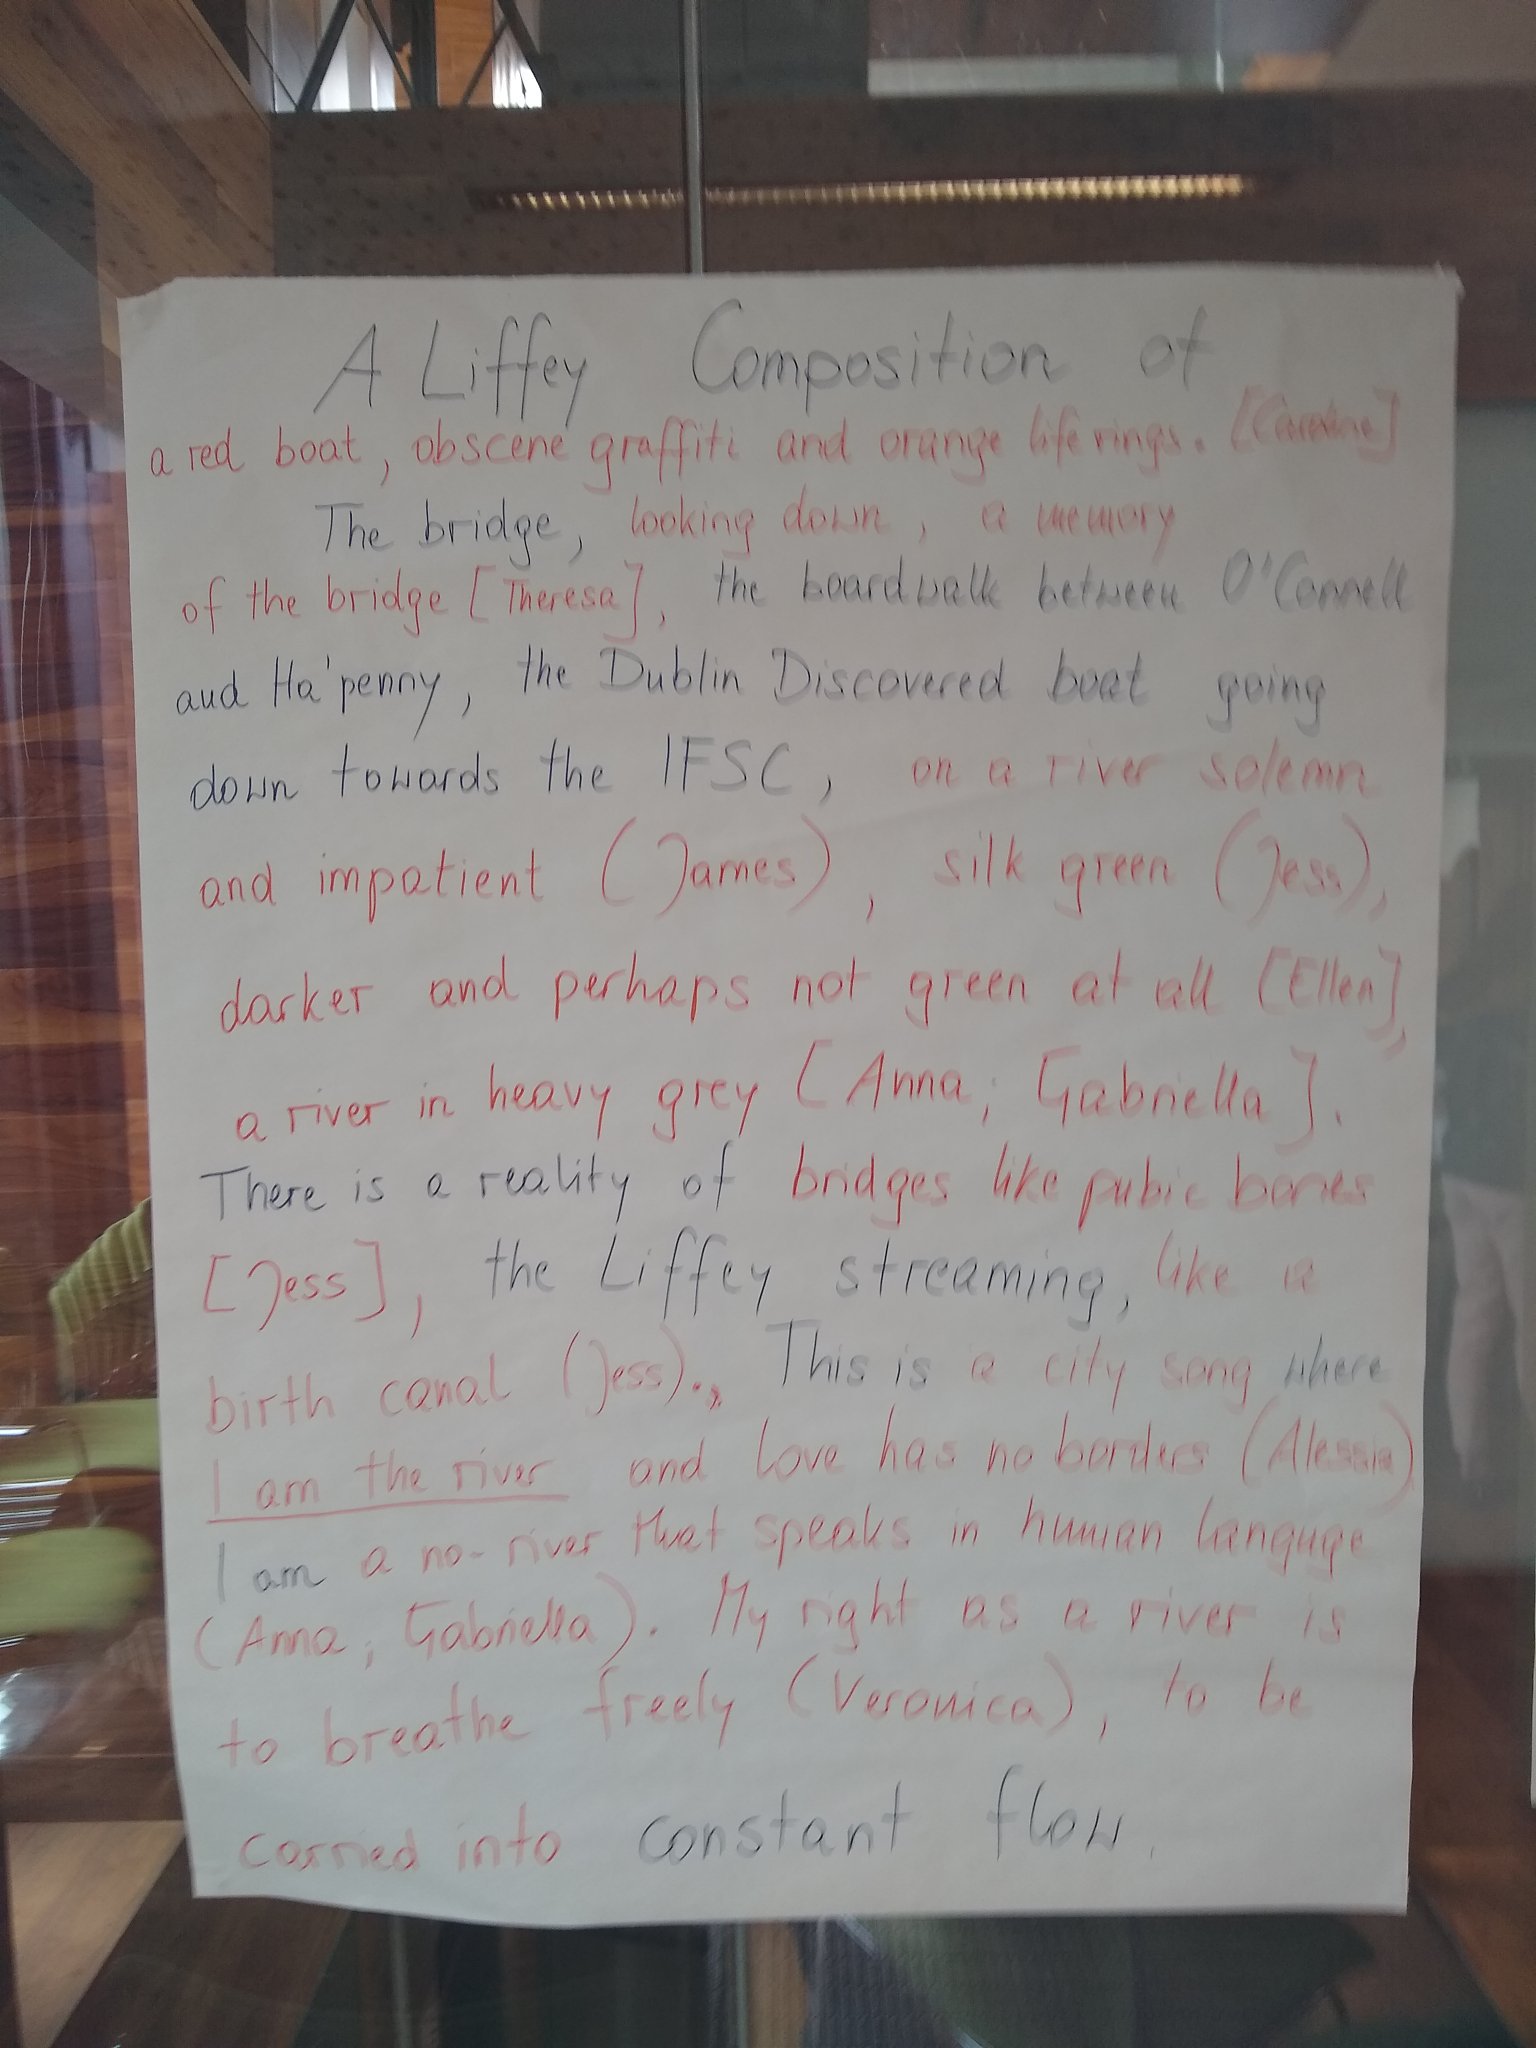 A Liffey Composition of
a red boat, obscene graffiti and orange life rings. [Caroline]
The bridge, looking down, a memory
of the bridge [Theresa], the boardwalk between O'Connell
and Ha'penny, the Dublin Discovered boat going
down towards the IFSC, on a river solemn
and impatient (James), silk green (Jess),
darker and perhaps not green at all [Ellen],
a river in heavy grey [Anna; Gabriella].
There is a reality of bridges like pubic bones
[Jess], the Liffey streaming, like a
birth canal (Jess)., This is a city song where
I am the river and love has no borders (Alessia)
I am a no-river that speaks in human languge
(Anna; Gabriella). My right as a river is
to breathe freely (Veronica), to be
carried into constant flow.